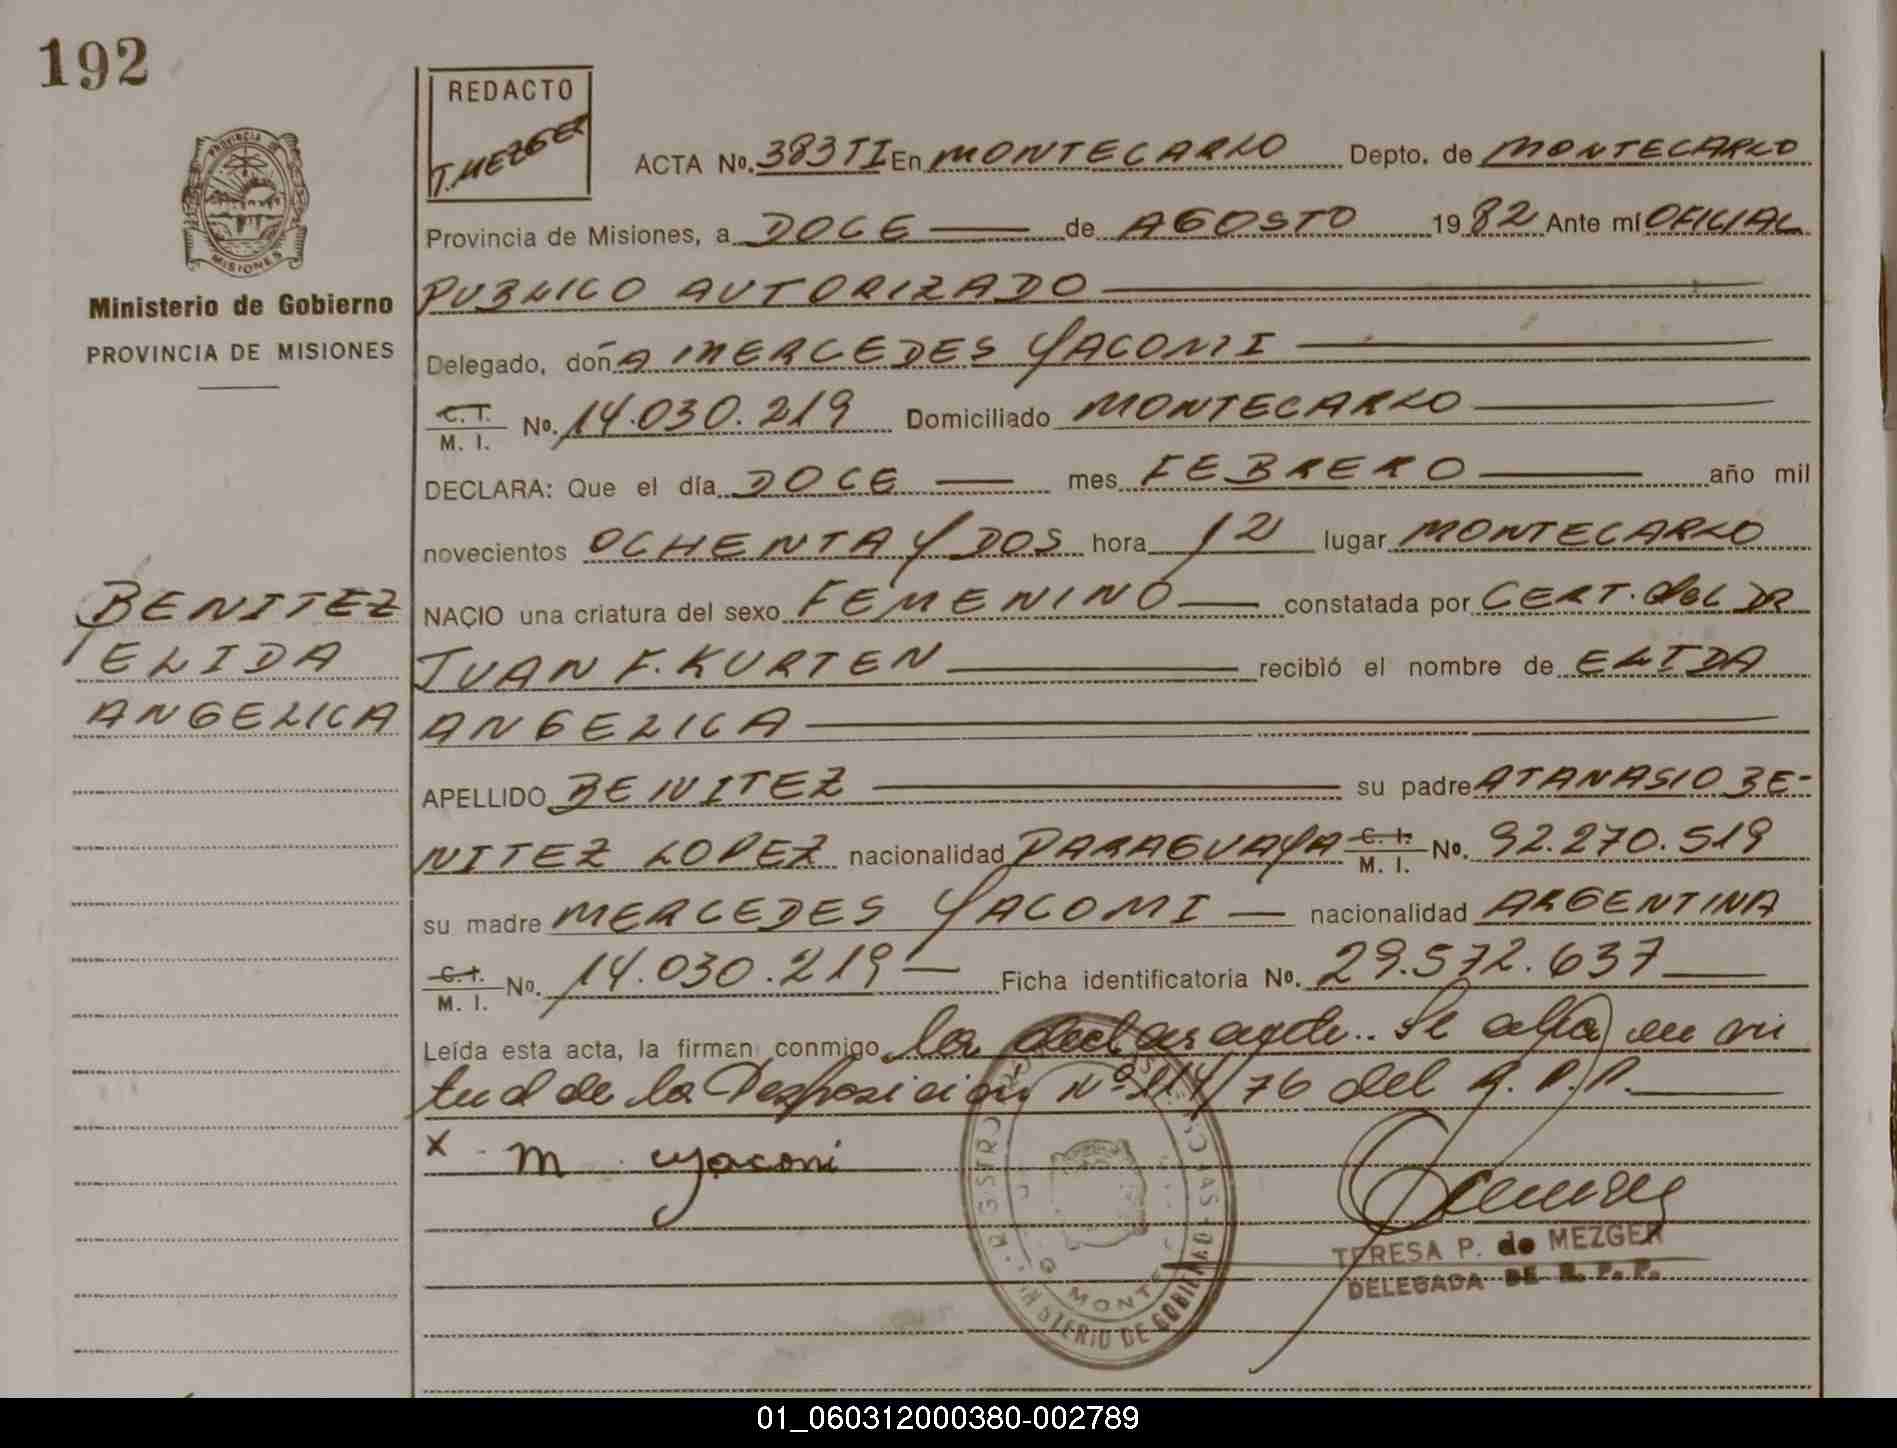 192
REDACTO
T. MEZGER
PROVINCIA
MISIONES
Ministerio de Gobierno
PROVINCIA DE MISIONES
ACTA No. 383TI En MONTECARLO Depto. de MONTECARLO
Provincia de Misiones, a DOCE de AGOSTO 1982 Ante mí OFICIAL
PUBLICO AUTORIZADO
Delegado, doña MERCEDES YACOMI
C. T. M. I. No. 14.030.219 Domiciliado MONTECARLO
DECLARA: Que el día DOCE mes FEBRERO año mil
novecientos OCHENTA Y DOS hora 12 lugar MONTECARLO
NACIO una criatura del sexo FEMENINO constatada por CERT. del DR
JUAN F. KURTEN recibió el nombre de ELIDA
ANGELICA
APELLIDO BENITEZ su padre ATANASIO BE-
NITEZ LOPEZ nacionalidad PARAGUAYA C. I. M. I. No. 92.270.519
su madre MERCEDES YACOMI nacionalidad ARGENTINA
C. I. M. I. No. 14.030.219 Ficha identificatoria No. 29.572.637
Leída esta acta, la firman conmigo la declarante.. Se en vir
tud de la Desposicion Nº 114/76 del R.P.P.
x m yaconi
BENITEZ
ELIDA
ANGELICA
TERESA P. de MEZGER
DELEGADA DE R. P. P.
01_060312000380-002789